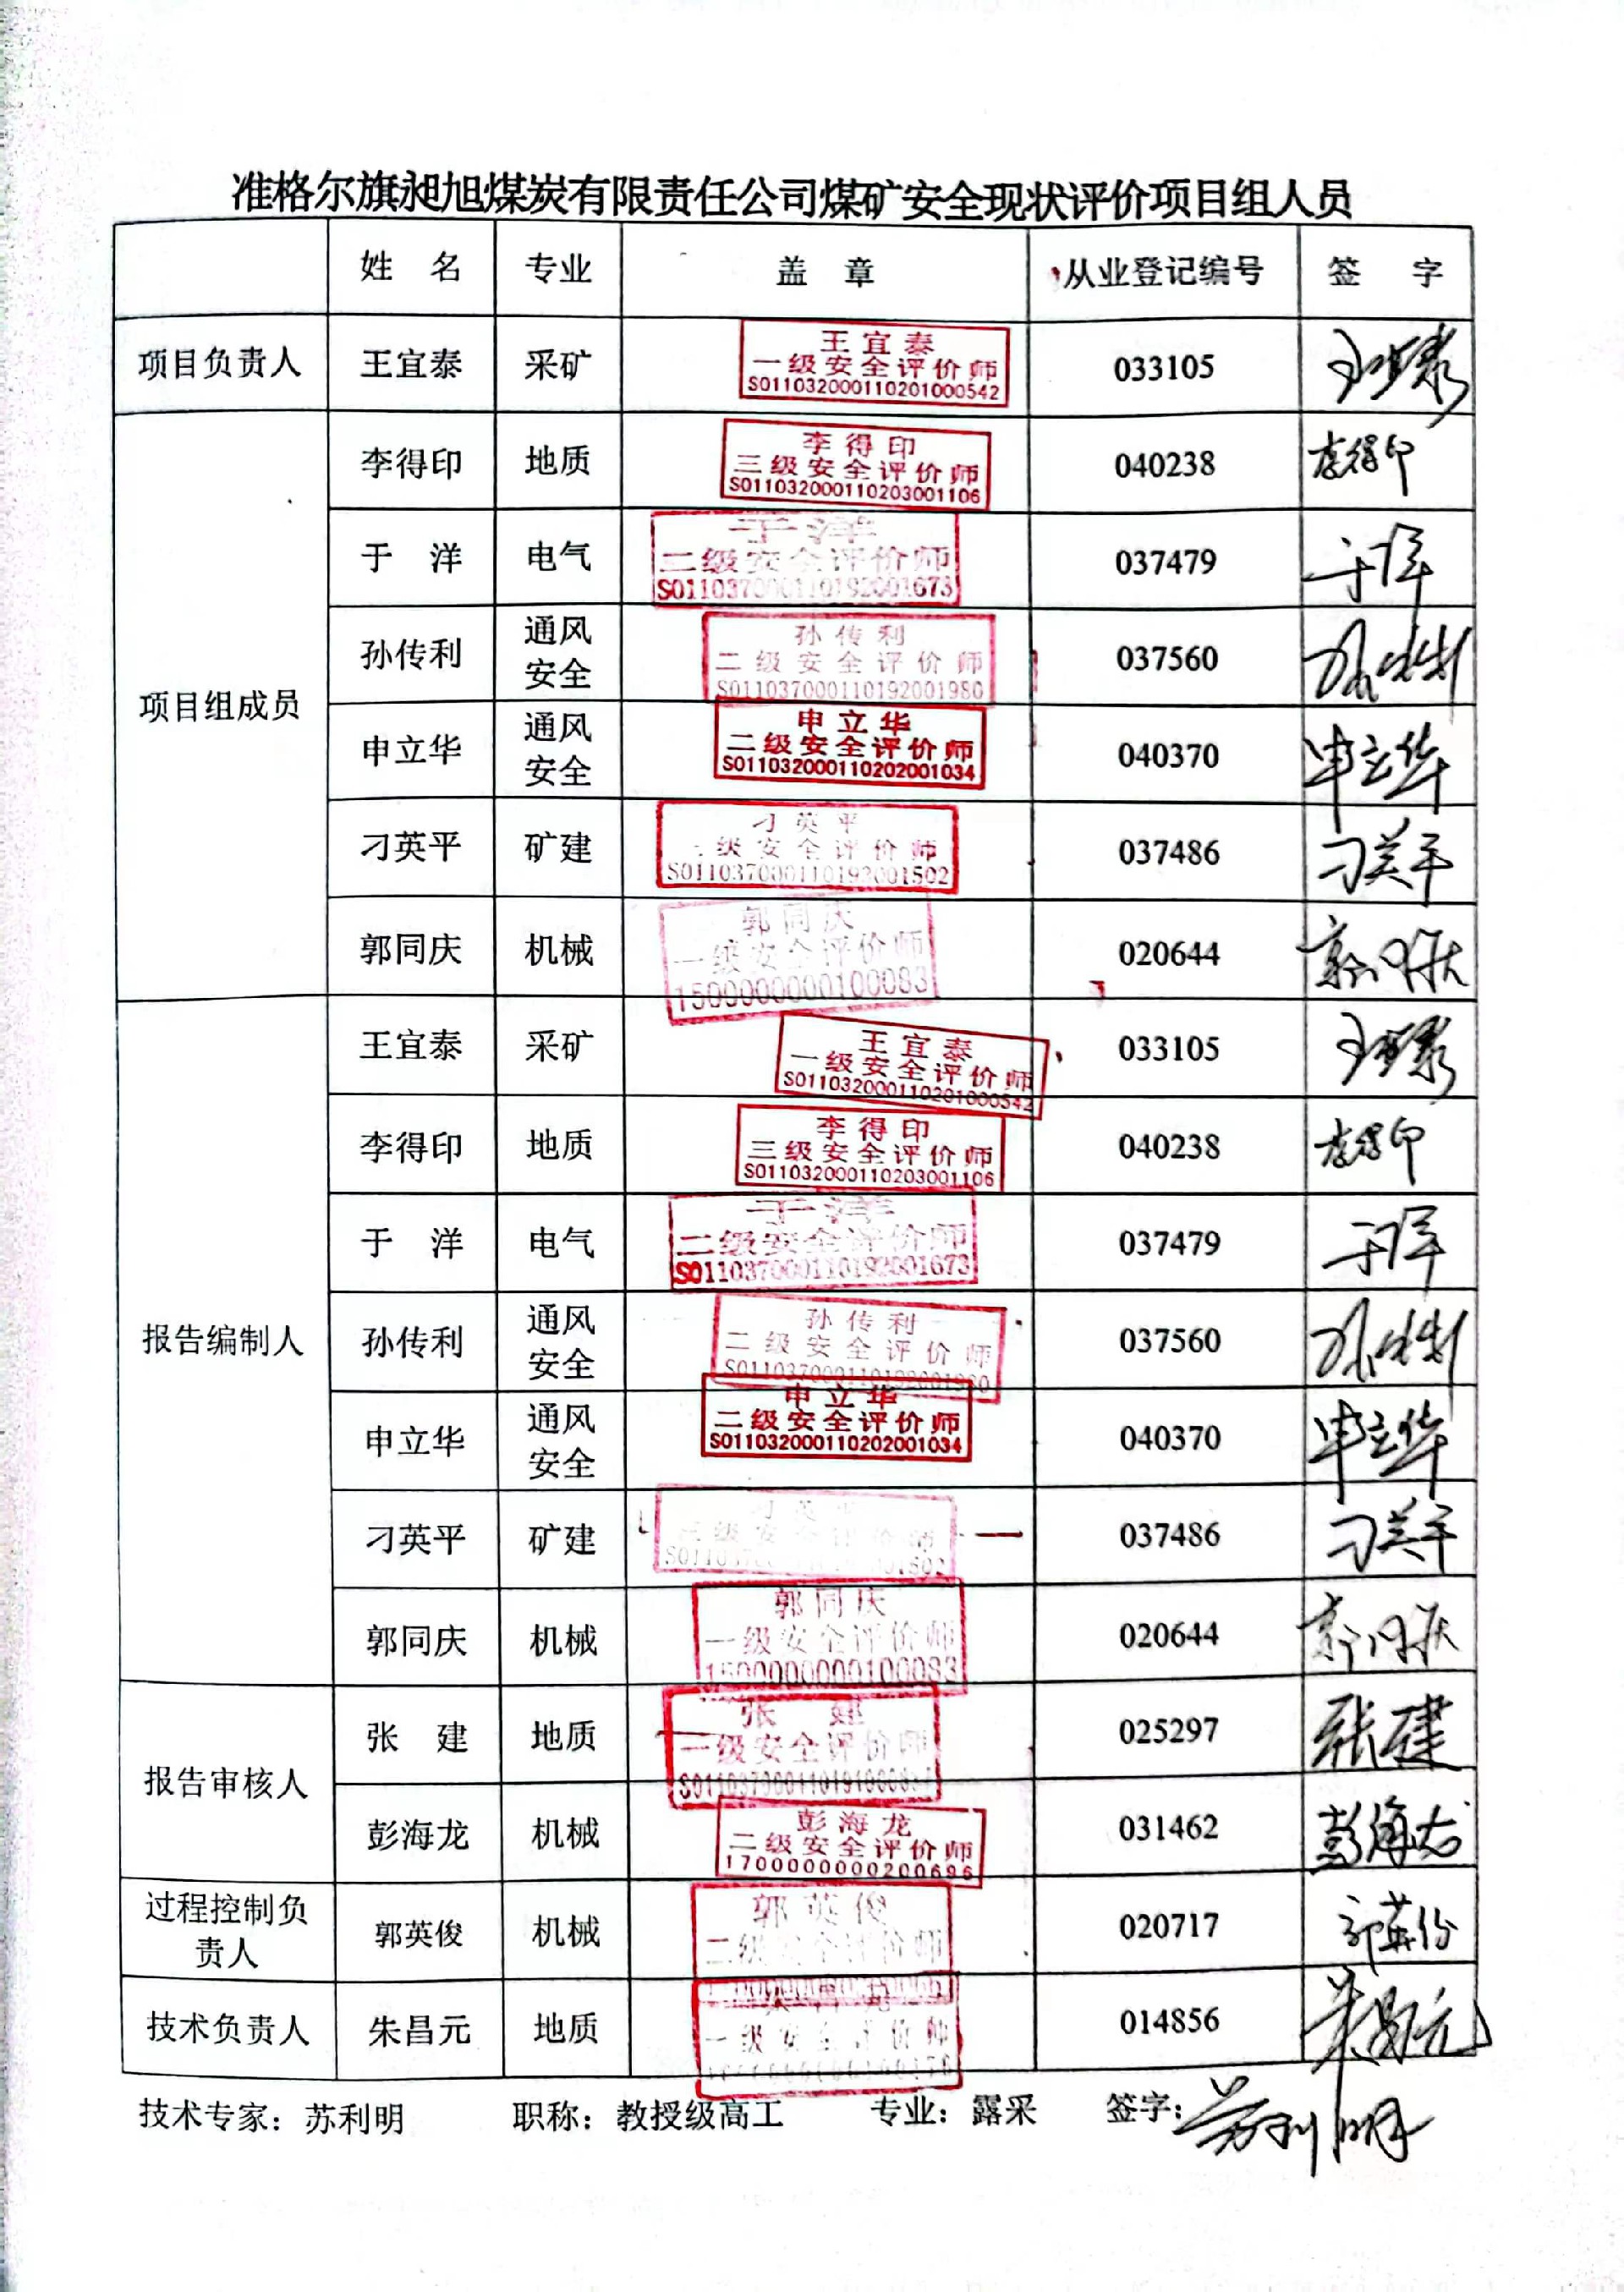 准格尔旗昶旭煤炭有限责任公司煤矿安全现状评价项目组人员
姓 名 专业 盖 章 从业登记编号 签 字
项目负责人 王宜泰 采矿 033105 王宜泰
王宜泰
一级安全评价师
S011032000110201000542
项目组成员
李得印 地质 040238 李得印
李得印
三级安全评价师
S011032000110203001106
于 洋 电气 037479 于洋
于洋
二级安全评价师
S011037000110192001673
孙传利 通风安全 037560 孙传利
孙传利
二级安全评价师
S011037000110192001980
申立华 通风安全 040370 申立华
申立华
二级安全评价师
S011032000110202001034
刁英平 矿建 037486 刁英平
刁英平
级安全评价师
S011037000110192001502
郭同庆 机械 020644 郭同庆
郭同庆
一级安全评价师
1500000000100083
报告编制人
王宜泰 采矿 033105 王宜泰
王宜泰
一级安全评价师
S011032000110201000542
李得印 地质 040238 李得印
李得印
三级安全评价师
S011032000110203001106
于 洋 电气 037479 于洋
于洋
二级安全评价师
S011037000110192001673
孙传利 通风安全 037560 孙传利
孙传利
二级安全评价师
S011037000110192001980
申立华 通风安全 040370 申立华
申立华
二级安全评价师
S011032000110202001034
刁英平 矿建 037486 刁英平
刁英平
级安全评价师
郭同庆 机械 020644 郭同庆
郭同庆
一级安全评价师
1500000000100083
报告审核人
张 建 地质 025297 张建
张 建
一级安全评价师
彭海龙 机械 031462 彭海龙
彭海龙
二级安全评价师
1700000000200696
过程控制负责人 郭英俊 机械 020717 郭英俊
郭英俊
二级安全评价师
技术负责人 朱昌元 地质 014856 朱昌元
一级安全评价师
技术专家：苏利明 职称：教授级高工 专业：露采 签字：苏利明